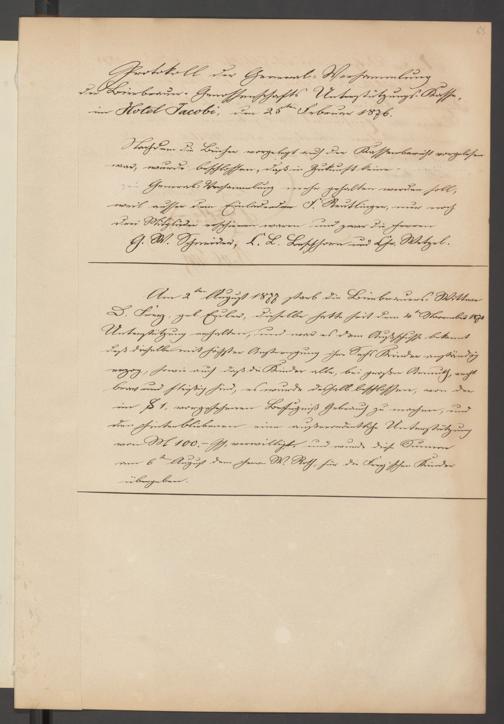 Protokoll der General-Versammlung
der Bierbrauer-Genossenschafts Unterstützungs-Kasse,
im Hotel Jacobi, den 25ten Februar 1876.
Nachdem die Bücher vorgelegt und der Kassenbericht vorgelesen
war, wurde beschlossen, daß in Zukunft keine
General-Versammlung mehr gehalten werden soll,
weil ausser dem Einladenden J. Reutlinger, nur noch
drei Mitglieder erschienen waren und zwar die Herren
G. W. Schneider, C. L. und Chr. Wetzel.
Am 2ten August 1877 starb die Bierbrauers Wittwe
D. geb. Euler, dieselbe hatte seit dem 4ten November
Unterstützung erhalten, und war es dem Ausschusse bekannt
daß dieselbe mit höchster Anstrengung ihre sechs Kinder anständig
erzog, sowie auch daß die Kinder alle, bei großer Armuth, recht
brav und fleißig sind, es wurde deshalb beschlossen, von der
im § 1. vorgesehenen Befugniß Gebrauch zu machen, und
den Hinterbliebenen eine außerordentliche Unterstützung
von M 100,— verwilligt, und wurde diese Summe
am 6ten August dem Herrn W. Roth, für die Kinder
übergeben.